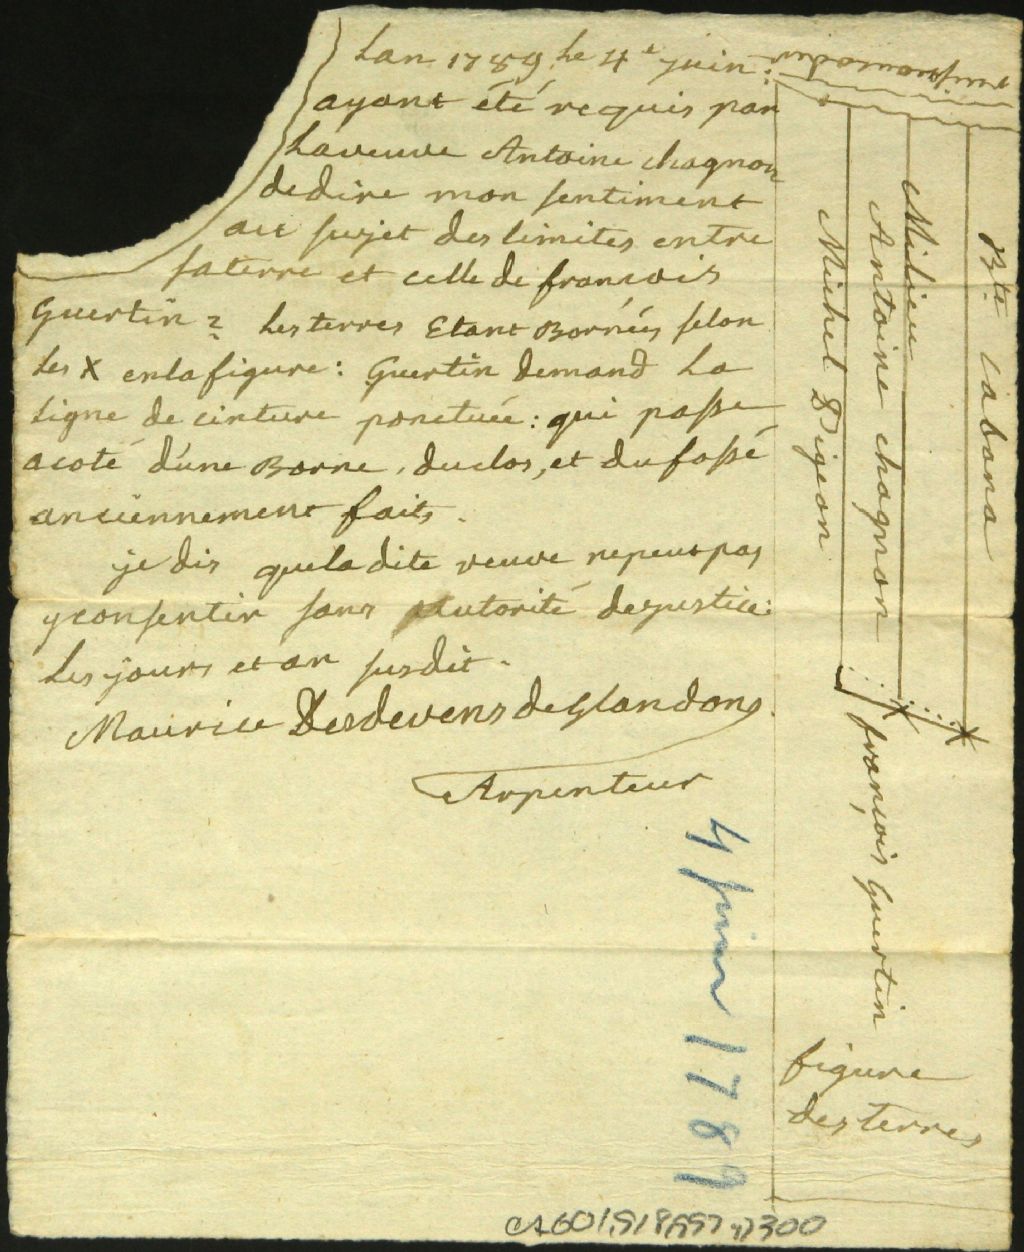 Lan 1789 le 4e juin:
ayant été requis par
La veuve Antoine chagnon
de dire mon sentiment
au sujet des limites entre
sa terre et celle de francois
Guertin 2 Les terres Etant Bornées selon
Les X en la figure: Guertin demand La
Ligne de cinture ponctuée: qui passe
a coté d'une Borne, du clos, et du fossé
anciennement faits.
je dis que la dite veuve ne peut pas
y consentir sans Autorité de justice:
Les jours et an susdit.
Maurice Desdevens de Glandons
Arpenteur
Bte Cabana
Milieu
Antoine chagnon
Michel Digeon
françois Guertin
figure
des terres
4 juin 1789
CA601,S18,SS7,D300